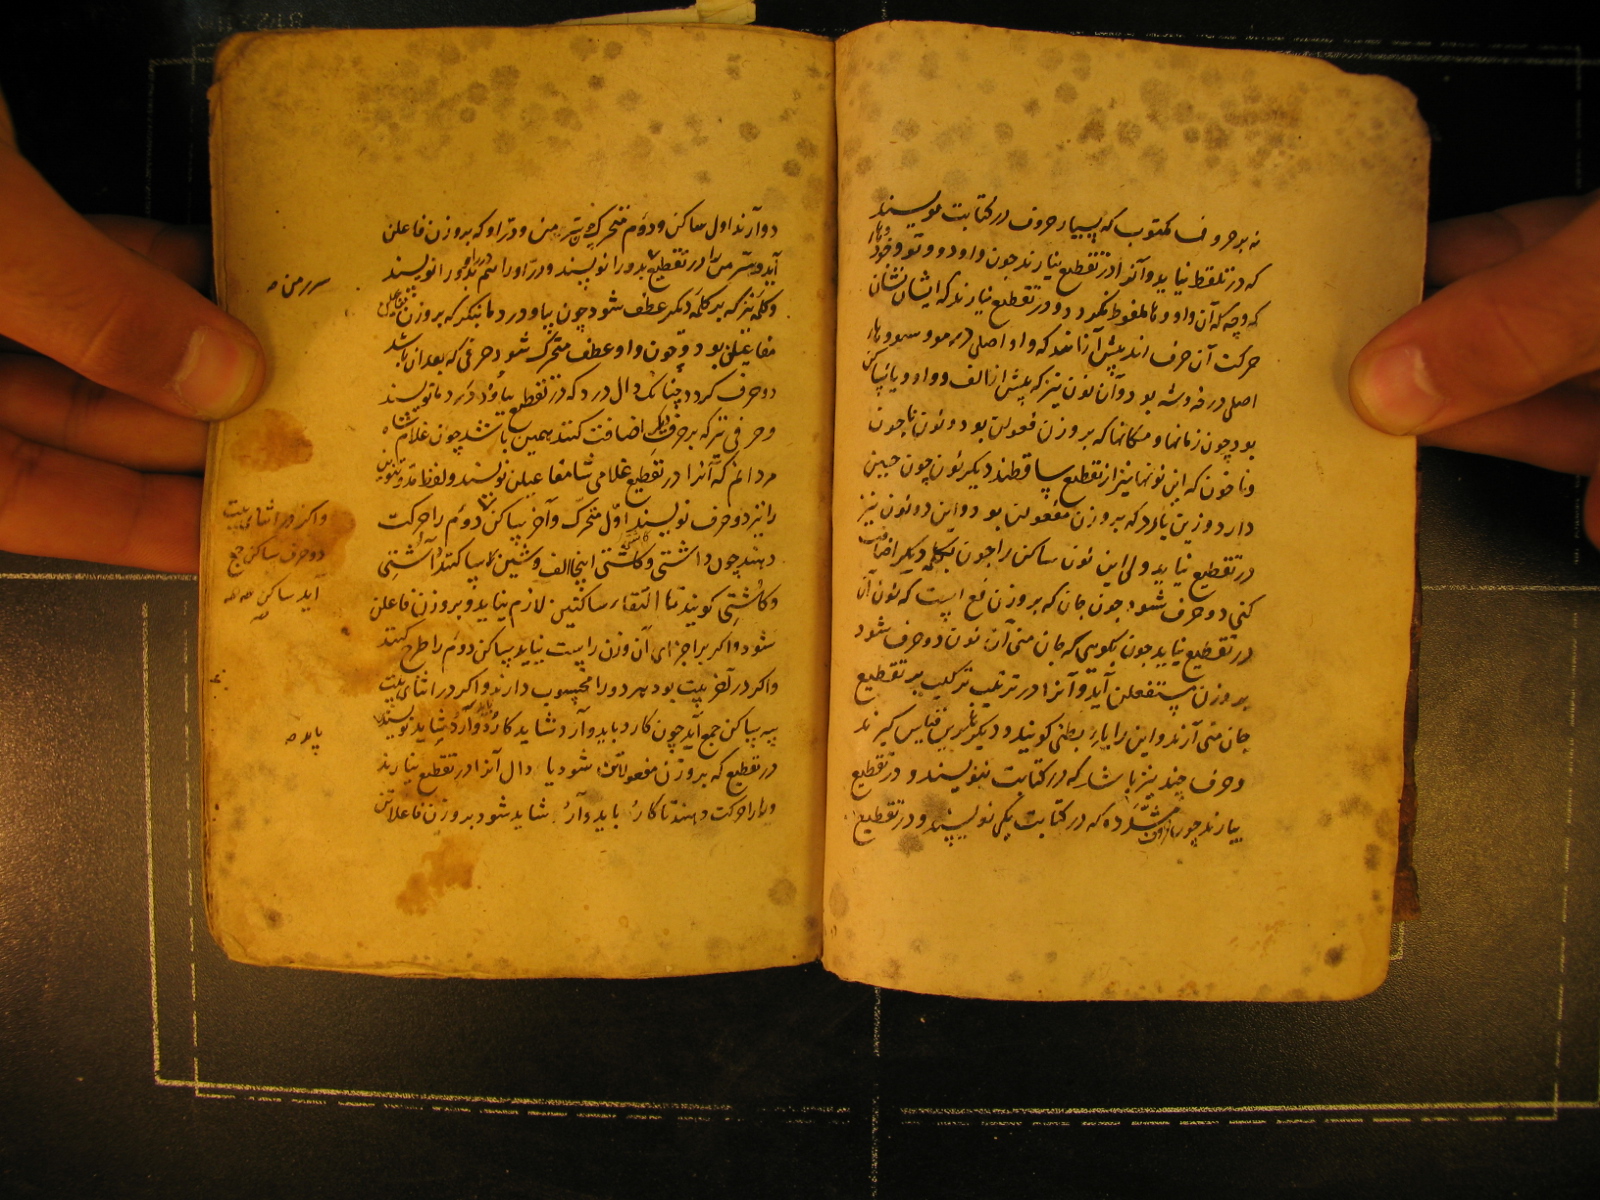 نه بر حروف مکتوب که بسیار حروف در کتابت نویسند
که در تلفظ نیاید و آنرا در تقطیع نیارند چون واو دو و تو و خود
که و چه که آن واو و ها ملفوظ نگردد و در تقطیع نیارند که ایشان نشان
حرکت آن حرف اند پیش آزانند که واو اصلی در مو و سبو و هاء
اصلی در و شه بود و آن نون نیز که پیش از الف و واو و یا ساکن
بود چون زمانها و مکانها که بر وزن فعولن بود و نون با چون
و نا خون که این نونها نیز از تقطیع ساقطند دیگر نون چون جبین
دارد و زین یارد که بر وزن مفعولن بود و این دو نون نیز
در تقطیع نیاید ولی این نون ساکن را چون بکلمه دیگر اضافت
کنی دو حرف شود چون جان که بر وزن فع است که نون آن
در تقطیع نیاید چون بگویی که جان منی آن نون دو حرف شود
بر وزن مستفعلن آید و آنرا در ترتیب ترکیب بر تقطیع
جان منی آرند و این را یاء بطنی گویند و دیگر برین قیاس گیرند
و حرف چند نیز باشد که در کتابت ننویسند و در تقطیع
بیارند چون حروف مشدده که در کتابت یکی نویسند و در تقطیع
دو آرند اول ساکن و دوم متحرک چون سر من و در او که بر وزن فاعلن
آید و سر من را در تقطیع بدو را نویسند و در او را هم بدو را نویسند
و کلمه نیز که بر کلمه دیگر عطف شود چون بیا و در دمانیکر که بر وزن مفاعیلن
مفاعیلن بود و چون واو عطف متحرک شود حرفی که بعد از آن باشد
دو حرف گردد چنانک دال درد که در تقطیع بیاود در دما نویسند
و حرفی نیز که بر حرف دیگر اضافت کنند همین باشد چون غلام شاه
مردانم که آنرا در تقطیع غلامی شا مفاعیلن نویسند و لفظ مد و تنوین
را نیز دو حرف نویسند اول متحرک و آخر ساکن دوم را حرکت
دهند چون داشتی و کاشتی اینجا الف و شین را ساکنند داشتی
و کاشتی گویند تا التقاء ساکنین لازم نیاید و بر وزن فاعلن
شود و اگر بر اجزای آن وزن راست نیاید ساکن دوم را طرح کنند
و اگر در آخر بیت بود هر دو را محسوب دارند و اگر در اثنای بیت
سه ساکن جمع آید چون کارد باید و آرد شاید کارد و آرد شاید نویسند
در تقطیع که بر وزن مفعولاتن شود یا دال آنرا در تقطیع نیارند
و را را حرکت دهند تا کار باید و آر شاید شود بر وزن فاعلاتن
سر رمن صه
و اگر در اثنای بیت
دو حرف ساکن جمع
آید ساکن
باید صه